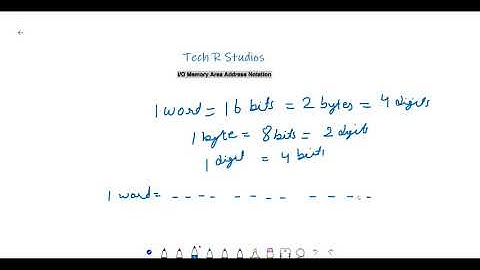 Tech R Studios
I/O Memory Area Address Notation
1 word = 16 bits = 2 bytes = 4 digits
1 byte = 8 bits = 2 digits
1 digit = 4 bits
1 word = _ _ _ _ _ _ _ _ _ _ _ _